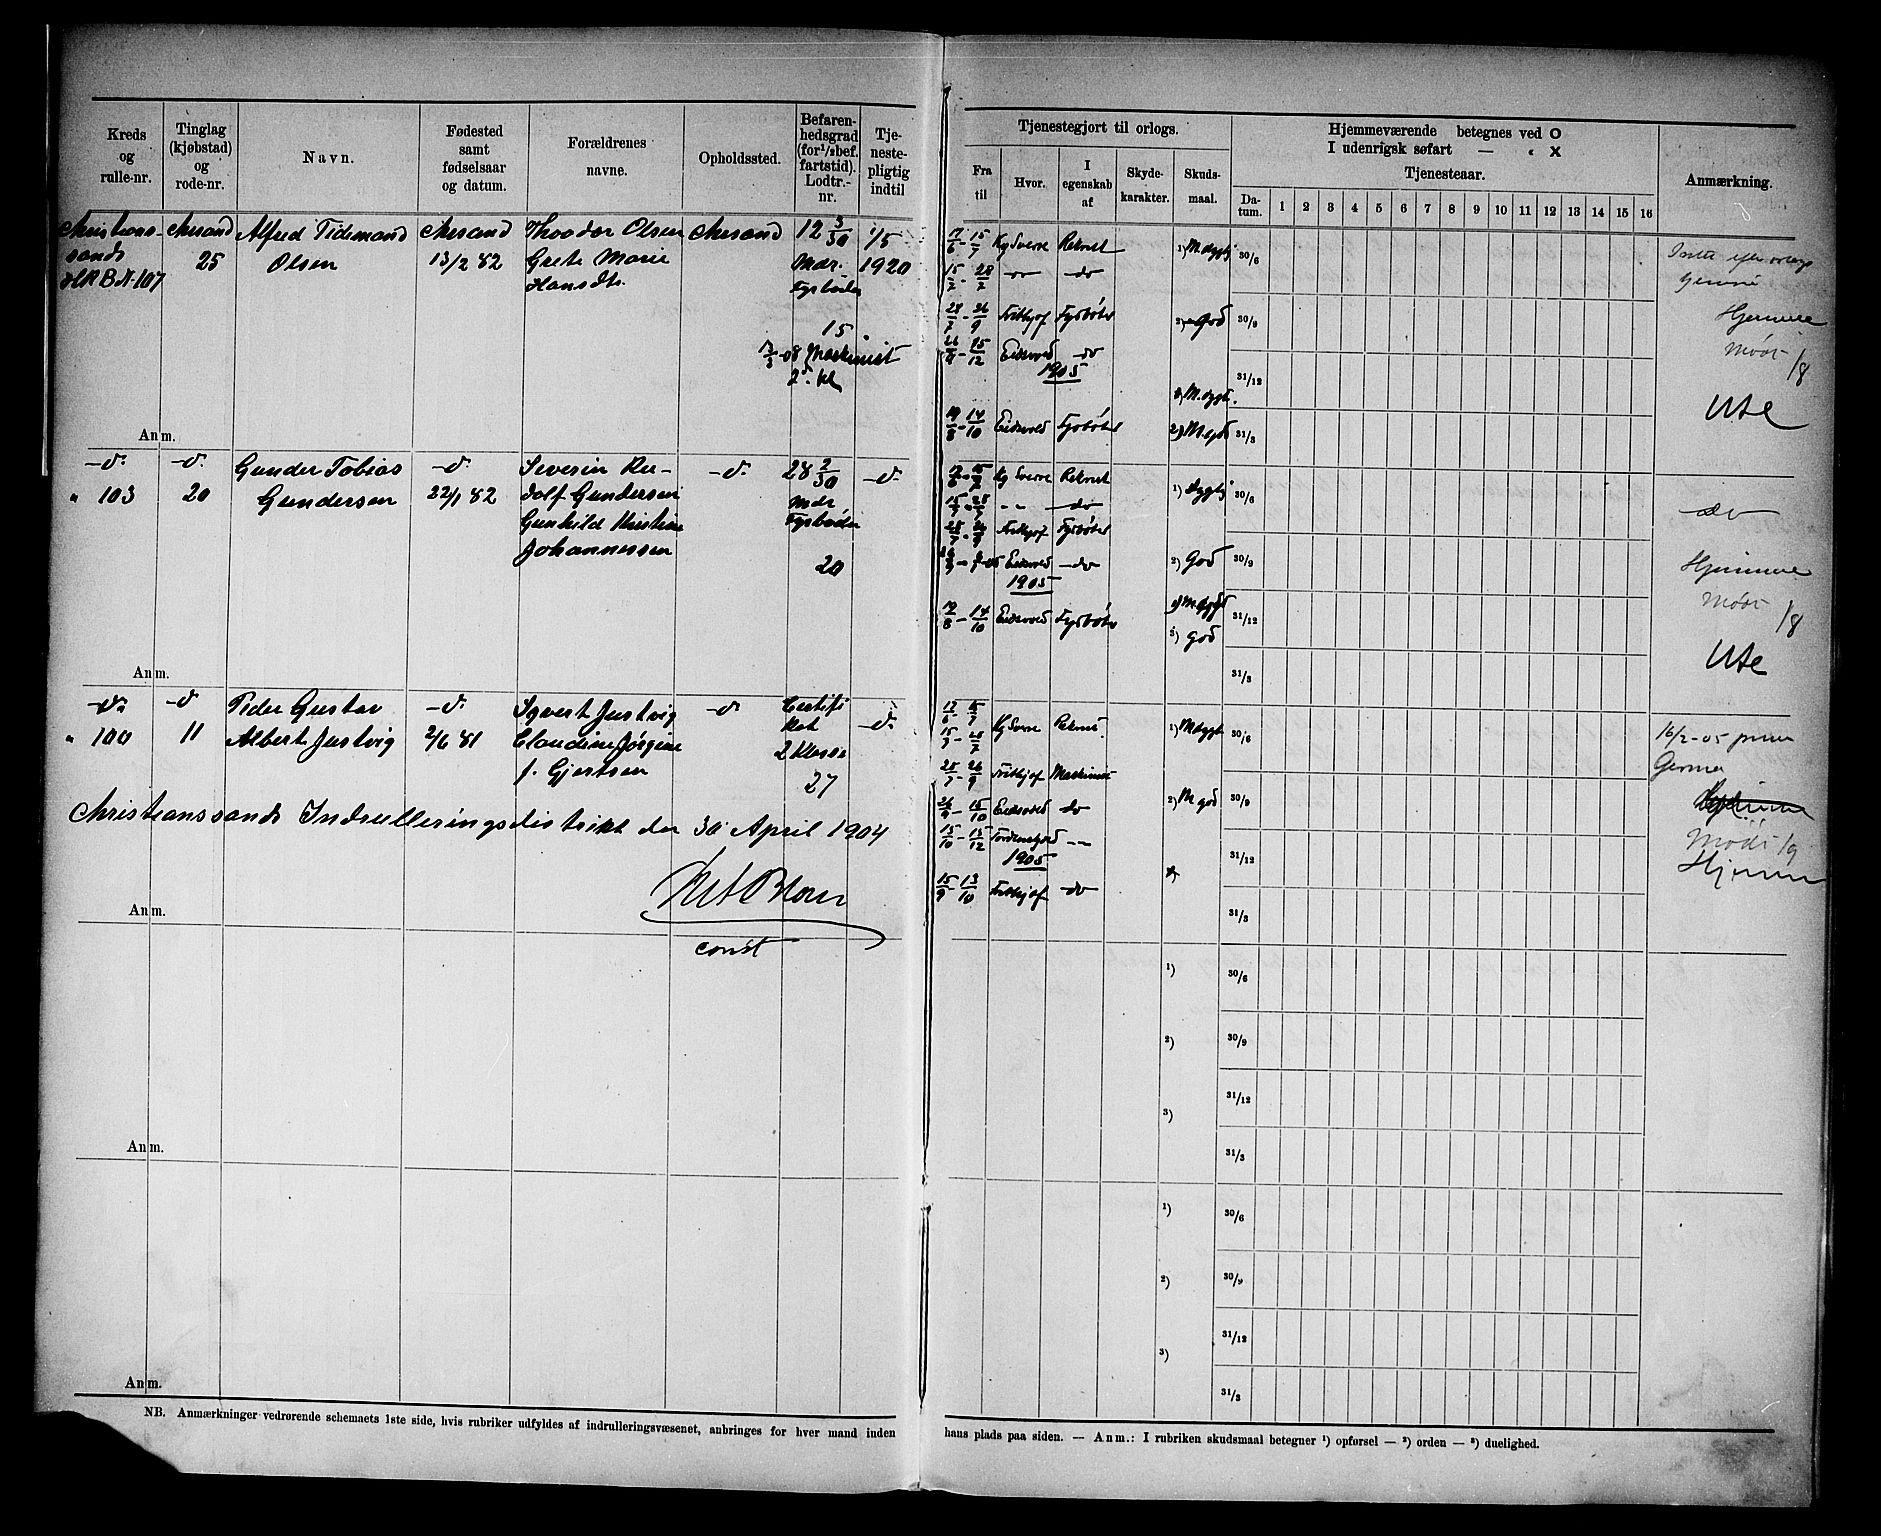 Kreds og rulle-nr.
Tinglag (kjøbstad) og rode-nr.
Navn.
Fødested samt fødselsaar og datum.
Forældrenes navne.
Opholdssted.
Befaren-hedsgrad (for 1/2 bef. fartstid). Lodtr.-nr.
Tje-neste-pligtig indtil
Tjenestegjort til orlogs.
Fra til
Hvor.
I egenskab af
Skyde-karakter.
Skuds-maal.
Hjemmeværende betegnes ved O
I udenrigsk søfart — " X
Tjenesteaar.
Da-tum. 1 2 3 4 5 6 7 8 9 10 11 12 13 14 15 16
Anmærkning.
Christians- Chrsand Alfred Tidemand Chrsand Theodor Olsen Chrsand 12 3/30 1/5
sands 25 Olsen 13/2 82 Grete Marie Mdr. 1920
107 Hansdtr. Fyrbøder
15
-08 Maskinist
2. kl
17/6 - 15/7 Kg Sverre Rekrut 1) M dygtig 30/6
15/7 - 28/7 -"- do
28/7 - 26/9 Frithjof Fyrbøter 2) God 30/9
26/9 - 15/12 Eidsvold do
1905
31/12
3) M. dygt.
19/8 - 14/10 Eidsvold Fyrbøter 2) M god 31/3
Hjemme
Mødt 1/8
Ute
Anm.
-d- -d- Gunder Tobias -d- Severin Ru- -d- 28 2/30 -d-
" 103 20 Gundersen 22/1 82 dolf Gundersen Mdr
Gunhild Kristine Fyrbøder
Johannessen
20
17/6 - 15/7 Kg Sverre Rekrut 1) dygtig 30/6
15/7 - 28/7 - - do
28/7 - 26/9 Frithjof Fyrbøter
Eidsvold do 2) God 30/9
1905
19/8 - 14/10 Eidsvold Fyrbøter 3) M dygt 31/12
3) god
31/3
do
Hjemme
Mødt 1/8
Ute
Anm.
-d- -d- Peder Gustav -d- Syvert Justvig -d- Certifi
" 100 11 Albert Justvig 2/6 81 Claudine Jørgine kat -d-
f. Gjertsen 2 Klasse
27
17/6 - 15/7
15/7 - 28/7 Kg Sverre 1) M dygt 30/6
28/7 - 26/9 Frithjof Maskinist
26/9 - 15/10 Eidsvold do 2) M god 30/9
15/10 - 15/12 Tordenskjold - -
1905
31/12
15/9 - 13/10 Frithjof do 3)
31/3
16/2-05
Møtt 1/9
Hjemme
Christianssands Indrulleringsdistrikt den 30 April 1904
const
Anm.
1) 30/6
2) 30/9
3) 31/12
31/3
Anm.
1) 30/6
2) 30/9
3) 31/12
31/3
Anm.
NB. Anmærkninger vedrørende schemaets 1ste side, hvis rubriker udfyldes af indrulleringsvæsenet, anbringes for hver mand inden hans plads paa siden. — Anm.: I rubriken skudsmaal betegner ¹) opførsel — ²) orden — ³) duelighed.